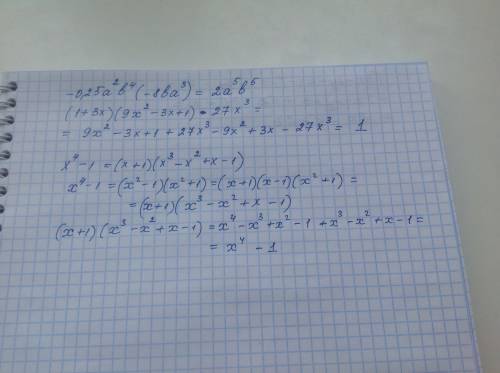 -0,25a²b⁴(-8ba³) = 2a⁵b⁵
(1+3x)(9x²-3x+1) - 27x³ =
= 9x²-3x+1+27x³-9x²+3x-27x³ = 1
x⁴-1 = (x+1)(x³-x²+x-1)
x⁴-1 = (x²-1)(x²+1) = (x+1)(x-1)(x²+1) =
= (x+1)(x³-x²+x-1)
(x+1)(x³-x²+x-1) = x⁴-x³+x²-1+x³-x²+x-1 =
= x⁴-1